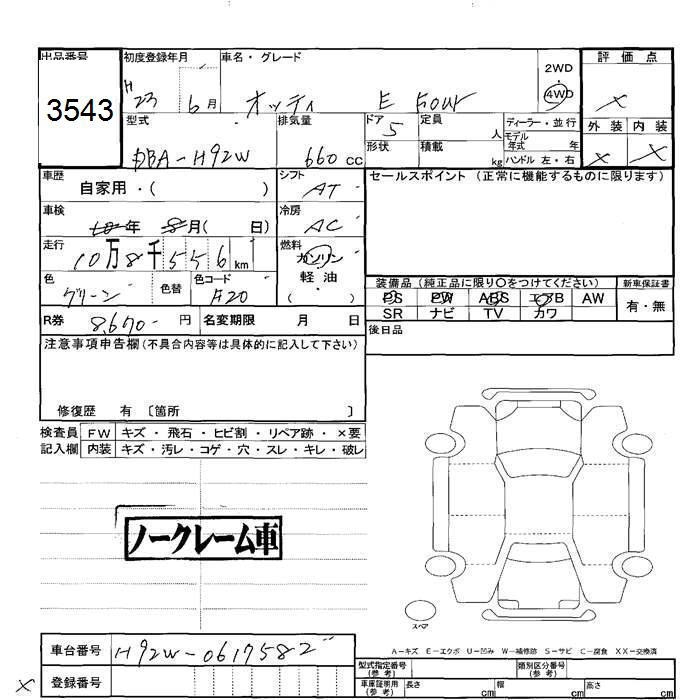 出品番号 初度登録年月 車名・グレード 2WD 4WD 評価点
3543 H 23 6月 オッティ E Four ×
型式 排気量 ドア 定員 ディーラー・並行 外装 内装
DBA-H92W 660 cc 5 人 モデル年式 年 × ×
形状 積載 kg ハンドル 左・右
車歴 シフト セールスポイント (正常に機能するものに限ります)
自家用・( ) AT
車検 年 8月( 日) 冷房 AC
走行 10万8千556km 燃料 ガソリン
軽油
( )
色 グリーン 色替 色コード F20
装備品 (純正品に限り〇をつけてください) 新車保証書
PS PW ABS エアB AW 有・無
SR ナビ TV カワ
R券 8,670- 円 名変期限 月 日 後日品
注意事項申告欄(不具合内容等は具体的に記入して下さい)
修復歴 有 〔箇所 〕
検査員 FW キズ・飛石・ヒビ割・リペア跡・×要
記入欄 内装 キズ・汚レ・コゲ・穴・スレ・キレ・破レ
ノークレーム車
スペア
A-キズ E-エクボ U-凹み W-補修跡 S-サビ C-腐食 XX-交換済
車台番号 H92W-0617582
型式指定番号(参考) 類別区分番号(参考)
× 登録番号
車庫証明用(参考) 長さ cm 幅 cm 高さ cm